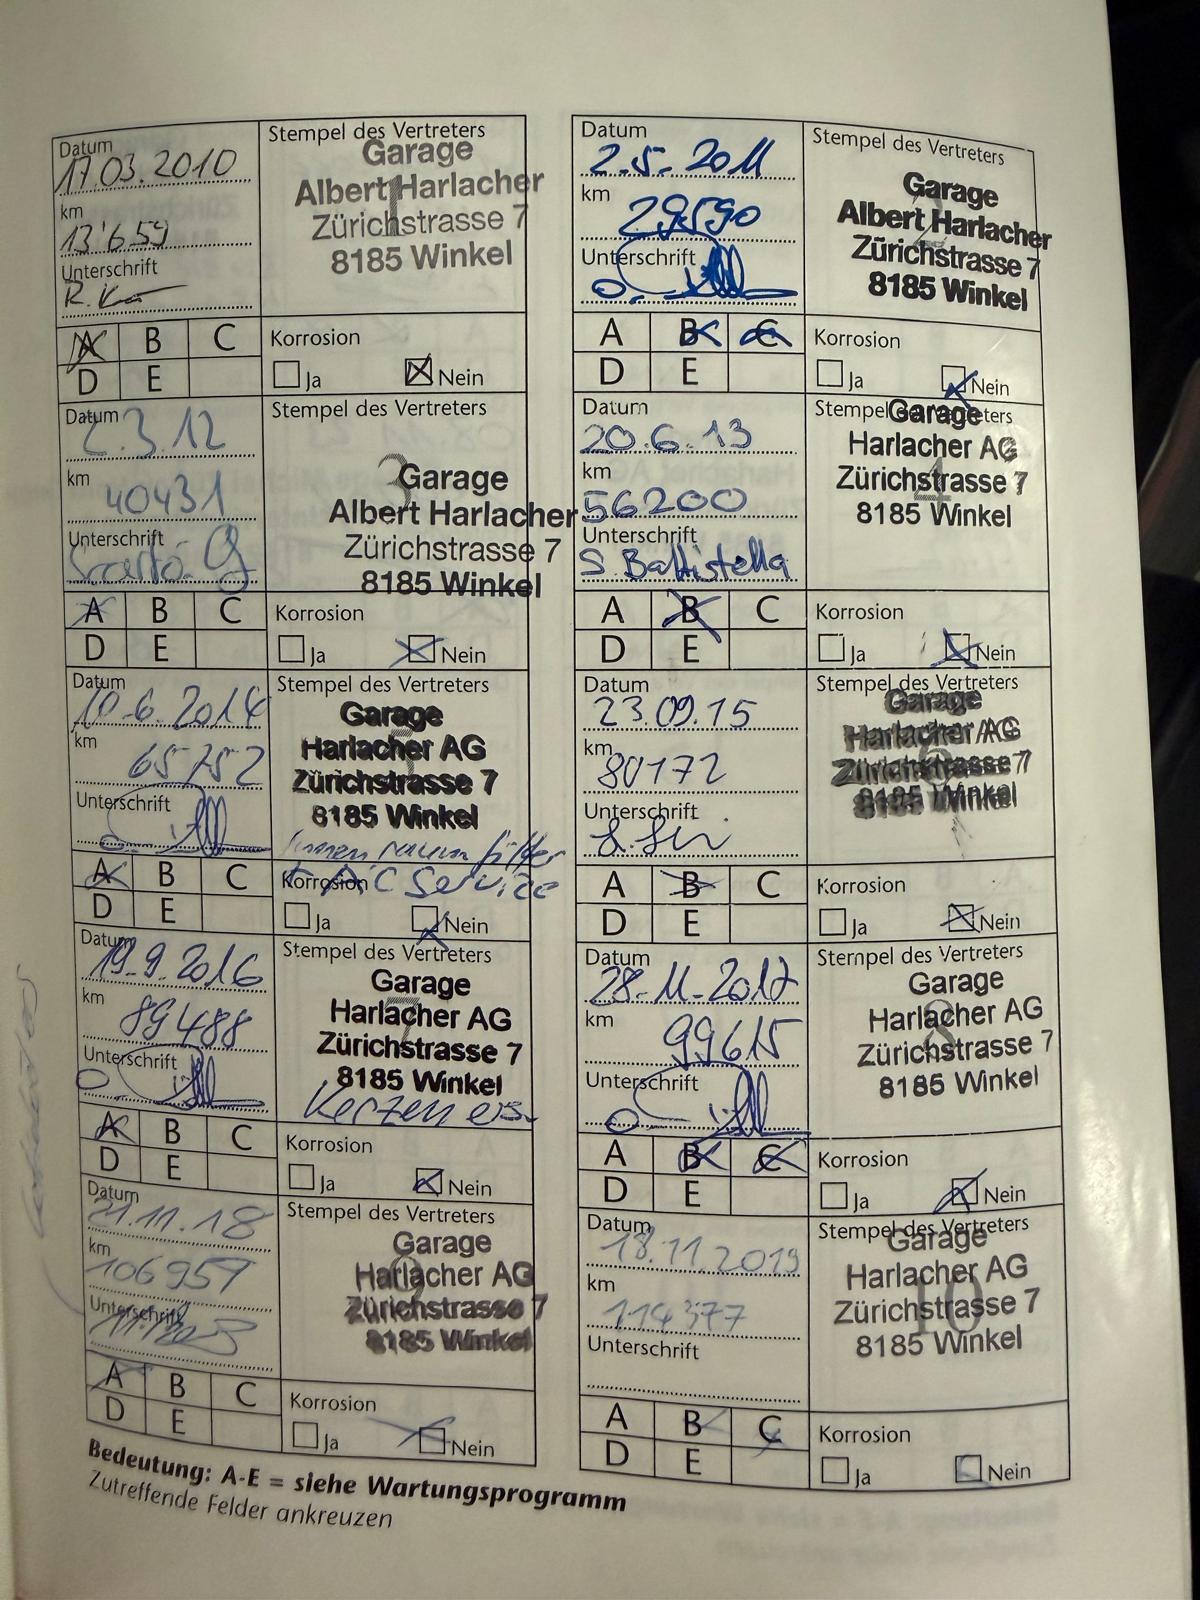 Datum
17.03.2010
km
13'659
Unterschrift
Stempel des Vertreters
1
Garage
Albert Harlacher
Zürichstrasse 7
8185 Winkel
A B C
D E
Korrosion
Ja Nein
Datum
2.5.2011
km
29590
Unterschrift
Stempel des Vertreters
Garage
Albert Harlacher
Zürichstrasse 7
8185 Winkel
A B C
D E
Korrosion
Ja Nein
Datum
2.3.12
km
40431
Unterschrift
Stempel des Vertreters
3
Garage
Albert Harlacher
Zürichstrasse 7
8185 Winkel
A B C
D E
Korrosion
Ja Nein
Datum
20.6.13
km
56200
Unterschrift
S. Battistella
Stempel des Vertreters
4
Garage
Harlacher AG
Zürichstrasse 7
8185 Winkel
A B C
D E
Korrosion
Ja Nein
Datum
10.6.2014
km
65752
Unterschrift
Stempel des Vertreters
Garage
Harlacher AG
Zürichstrasse 7
8185 Winkel
Innenraumfilter
+ AC Service
A B C
D E
Korrosion
Ja Nein
Datum
23.09.15
km
80172
Unterschrift
Stempel des Vertreters
Garage
Harlacher AG
Zürichstrasse 7
8185 Winkel
A B C
D E
Korrosion
Ja Nein
Datum
19.9.2016
km
89488
Unterschrift
Stempel des Vertreters
7
Garage
Harlacher AG
Zürichstrasse 7
8185 Winkel
Kerzen ers.
A B C
D E
Korrosion
Ja Nein
Datum
28.11.2017
km
99615
Unterschrift
Stempel des Vertreters
8
Garage
Harlacher AG
Zürichstrasse 7
8185 Winkel
A B C
D E
Korrosion
Ja Nein
Datum
21.11.18
km
106959
Unterschrift
Stempel des Vertreters
9
Garage
Harlacher AG
Zürichstrasse 7
8185 Winkel
A B C
D E
Korrosion
Ja Nein
Datum
18.11.2019
km
114377
Unterschrift
Stempel des Vertreters
10
Garage
Harlacher AG
Zürichstrasse 7
8185 Winkel
A B C
D E
Korrosion
Ja Nein
Bedeutung: A-E = siehe Wartungsprogramm
Zutreffende Felder ankreuzen